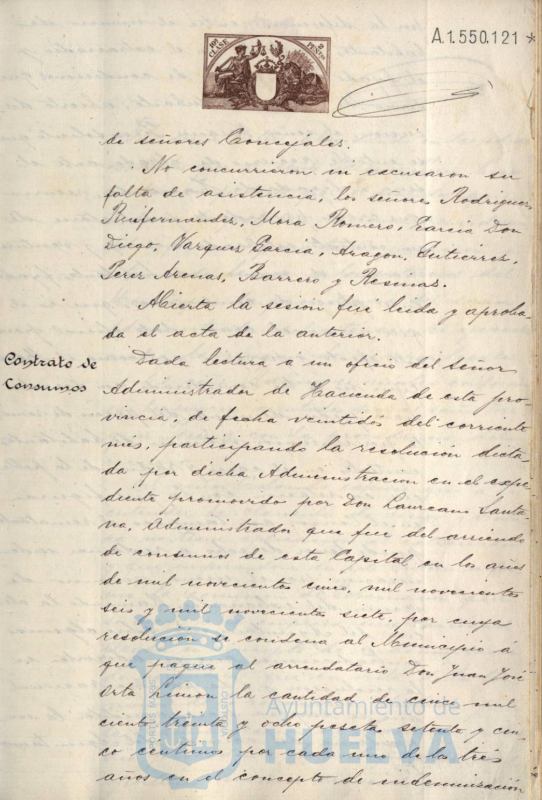 10ª CLASE
2 PESETAS
A.1.550.121 *
de señores Concejales.
No concurrieron ni escusaron su
falta de asistencia, los señores Rodriguez,
Rui-fernandez, Mora Romero, Garcia Don
Diego, Vazquez Garcia, Aragon, Gutierrez,
Perez Arenas, Barrero y Resinas.
Abierta la sesion fué leida y aproba-
da el acta de la anterior.
Contrato de
Consumos
Dada lectura a un oficio del Señor
Administrador de Hacienda de esta pro-
vincia, de fecha veintidós del corriente
més, participando la resolución dicta-
da por dicha Administracion en el expe-
diente promovido por Don Laureano Santa-
na, Administrador que fué del arriendo
de consumos de esta Capital en los años
de mil novecientos cinco, mil novecientos
seis y mil novecientos siete, por cuya
resolución se condena al Municipio a
que pague al arrendatario Don Juan José
Limon la cantidad de mil
ciento treinta y ocho pesetas setenta y cin-
co céntimos por cada uno de los tres
años en el concepto de indemnización
Ayuntamiento de
HUELVA